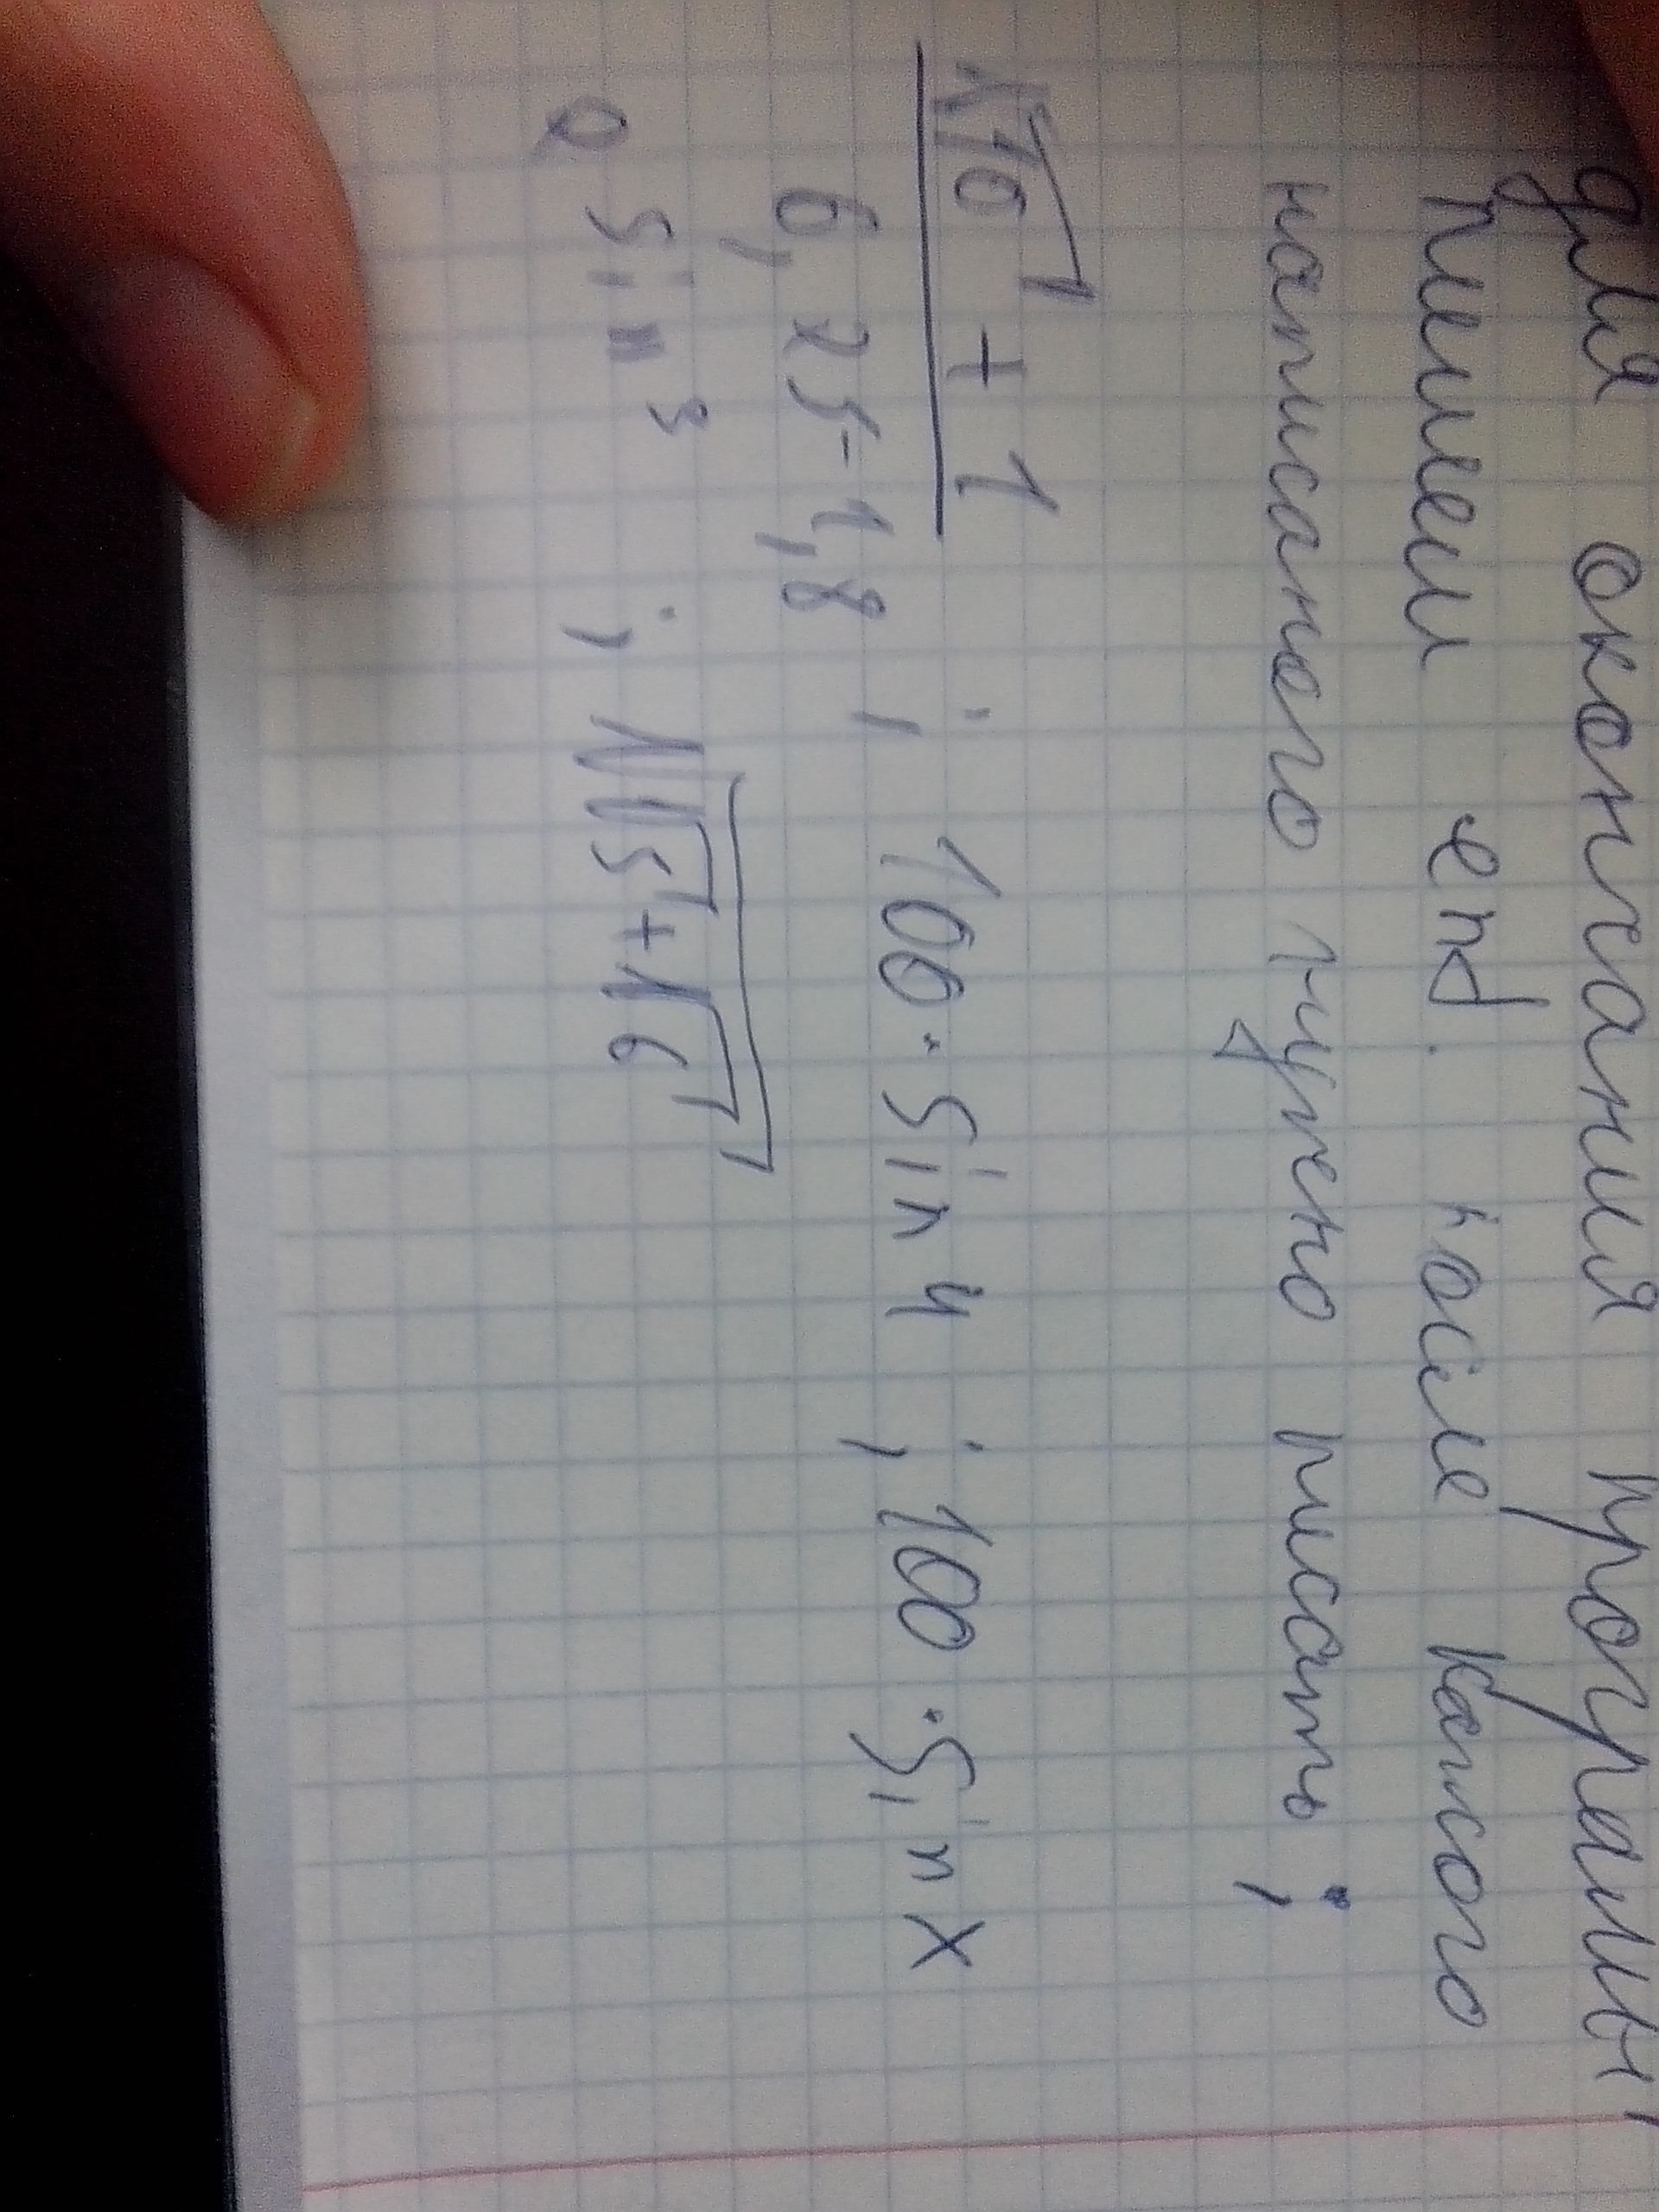 для окончания программы
пишем end. после каждого
написанного нужно писать ;
√10 + 1
6,25-1,8 ; 100·sin 4 ; 100·sin x
Q sin 3 ; √√5+√6